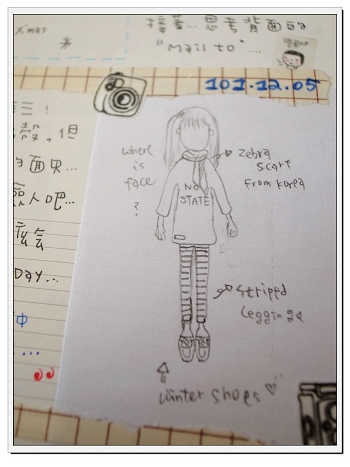 xmas
接著...思考背面的
"Mail to"....
101.12.05
三!
殼,但
面具...
人吧...
怎麼會
DAY...
中
...
where
is
face
?
zebra
scarf
from korea
NO
STATE
stripped
leggings
winter shoes